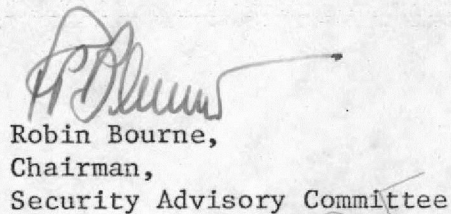 Robin Bourne,
Chairman,
Security Advisory Committee